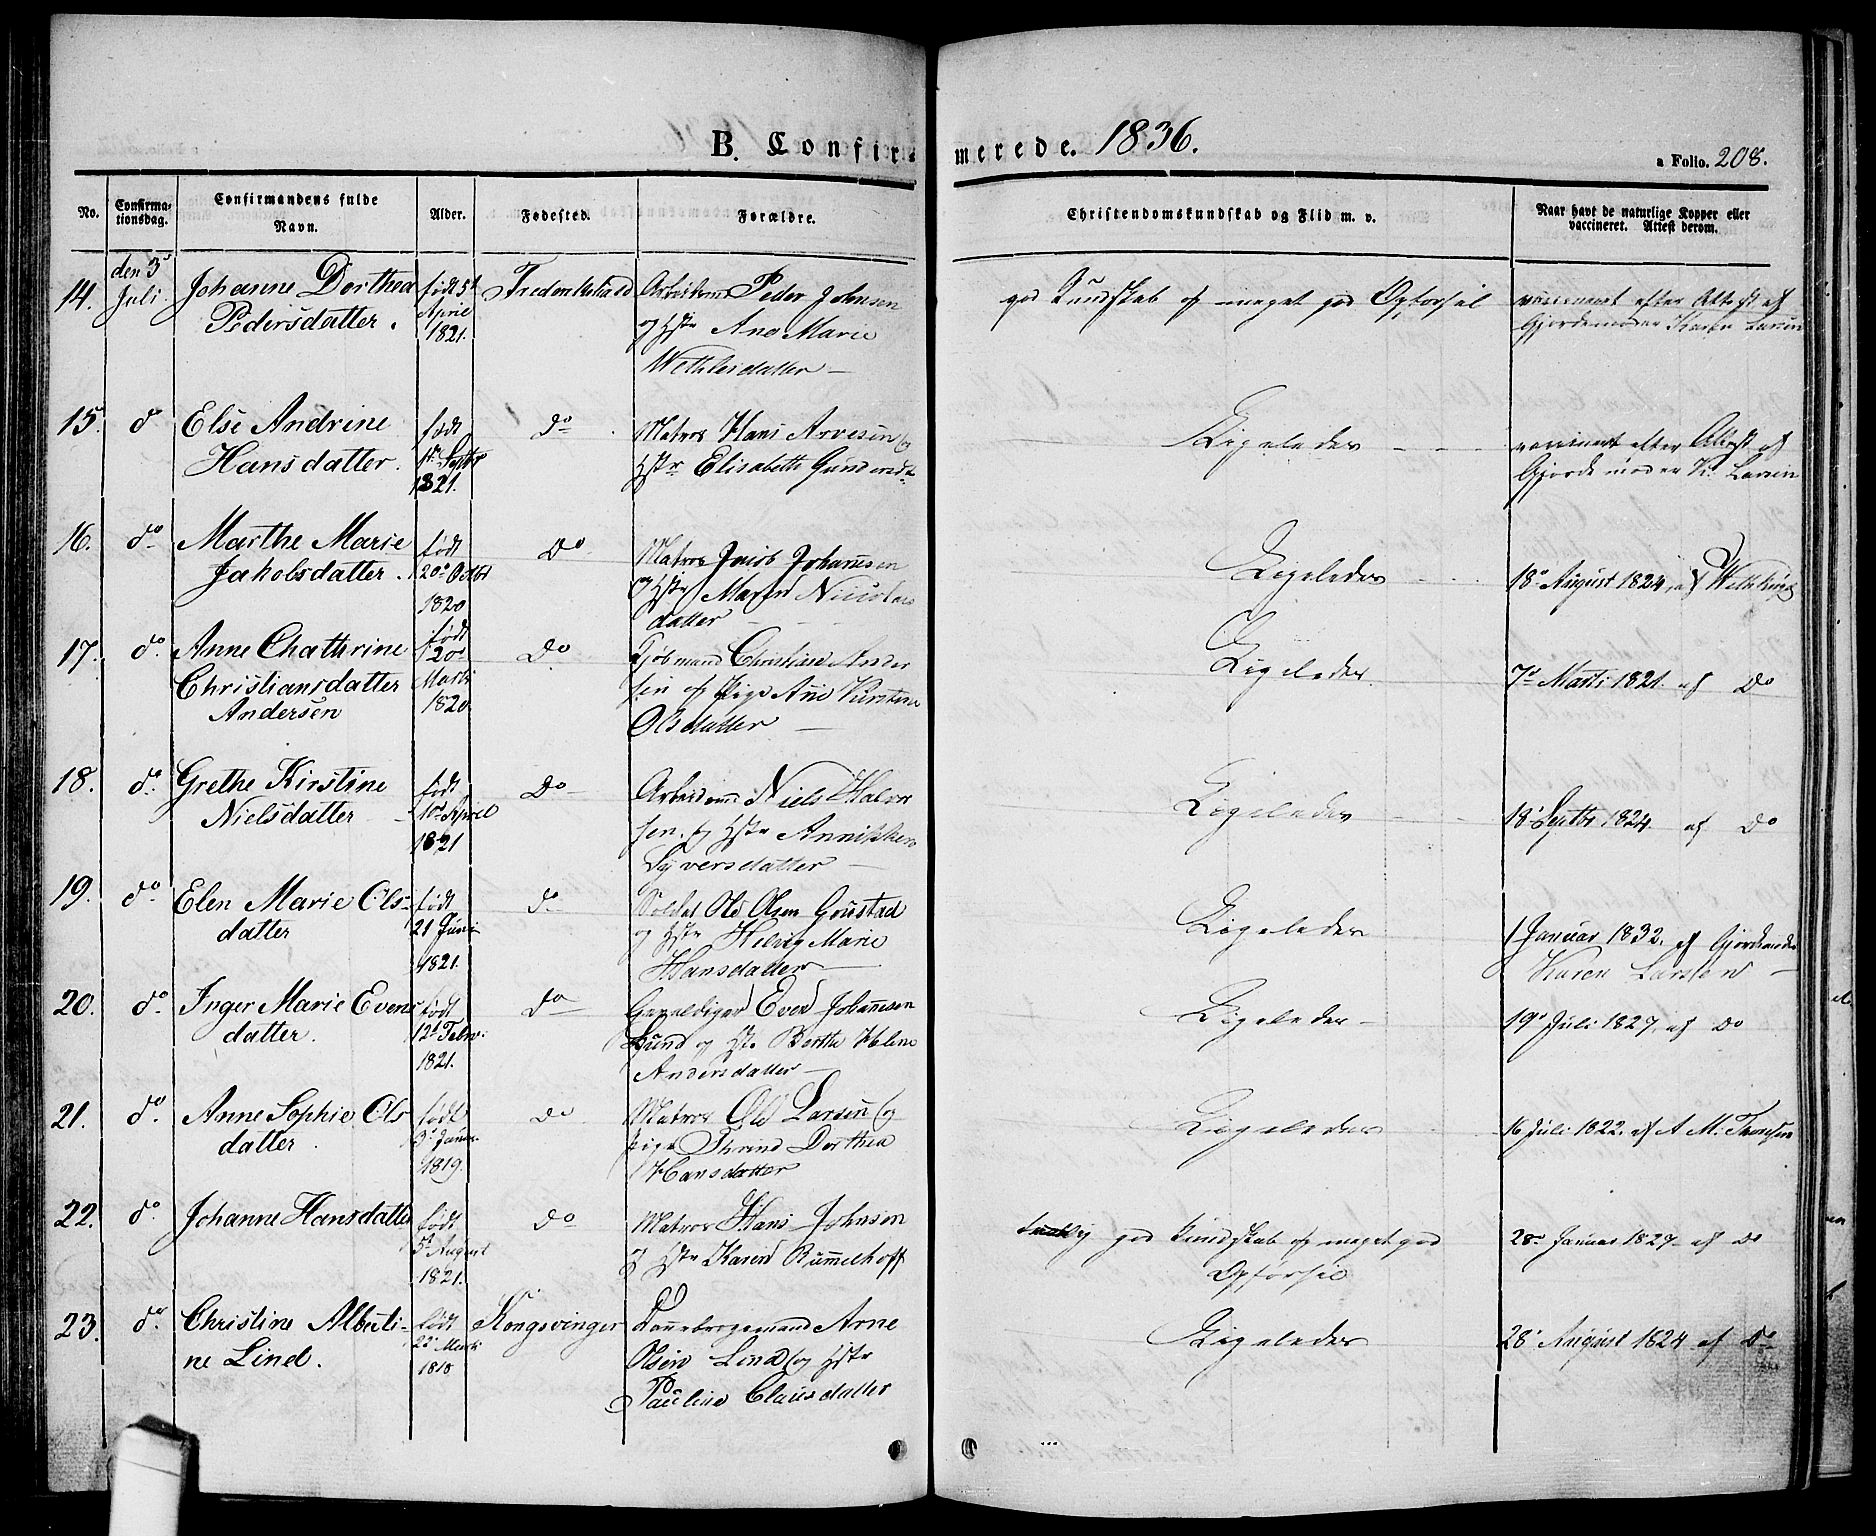 B. Confir-
merede. 1836.
a Folio. 208.
No.
Confirma-
tionsdag.
Confirmandens fulde
Navn.
Alder.
Fødested.
Forældre.
Christendomskundskab og Flid m. v.
Naar havt de naturlige Kopper eller
vaccineret. Attest derom.
14.
den 3
Juli
Johanne Dorthea
Pedersdatter.
født 5t
April
1821.
Frederikshald
Arbeidsmd Peder Johnsen
og Hstr Ane Marie
Wethlesdatter
god Kundskab og meget god Opførsel
vaccineret efter Attest af
Gjordemoder Karen Larsen
15.
do
Else Andrine
Hansdatter.
født
1st Septbr
1821.
Do
Matros Hans Arvesen og
Hstr Elisabeth Gundersdt
Ligeledes
vaccineret efter Attest af
Gjordemoder K. Larsen
16.
do
Marthe Marie
Jakobsdatter.
født
20de Octbr
1820
Do
Matros Jacob Johannesen
og Hstr Maren Nicolai
datter
Ligeledes
18de August 1824, af
17.
do
Anne Chathrine
Christiansdatter
Andersen
født
20de
Marts
1820
Do
Kjøbmand Christian Ander
sen og Pige Ane Kirstine
Olsdatter
Ligeledes
7de Marts 1821. af Do
18.
do
Grethe Kirstine
Nielsdatter
født
10de April
1821
Do
Arbeidsmd Niels Halvor
sen, og Hstr Annikken
Syversdatter
Ligeledes
18de Septbr 1824 af Do
19.
do
Elen Marie Ols-
datter
født
21 Juni
1821.
do
Soldat Ole Olsen
og Hstr Helvig Marie
Hansdatter
Ligeledes
1 Januar 1832. af Gjordemoder
Karen Larsen
20.
do
Inger Marie Evens
datter.
født
12te Febr.
1821.
Do
Gevaldiger Even Johannesen
Lund og Hstr Berthe Helene
Andersdatter
Ligeledes
19de Juli 1827, af Do
21.
do
Anne Sophie Ols
datter.
født
3de Januar
1819.
Do
Matros Ole Larsen og
pige Thrine Dorthea
Hansdatter
Ligeledes
16 Juli 1822. af A M. Thomsen
22.
do
Johanne Hansdatter
født
5t August
1821.
Do
Matros Hans Johnsen
og Hstr Karen Rummelhoff
god Kundskab og meget god
Opførsel
28de Januar 1827 af Do
23.
do
Christine Alberti-
ne Lind.
født
22de Marts
1818
Kongsvinger
Dannebrogsmand Arne
Olsen Lind og Hstr
Pauline Clausdatter
Ligeledes
28de August 1824 af Do